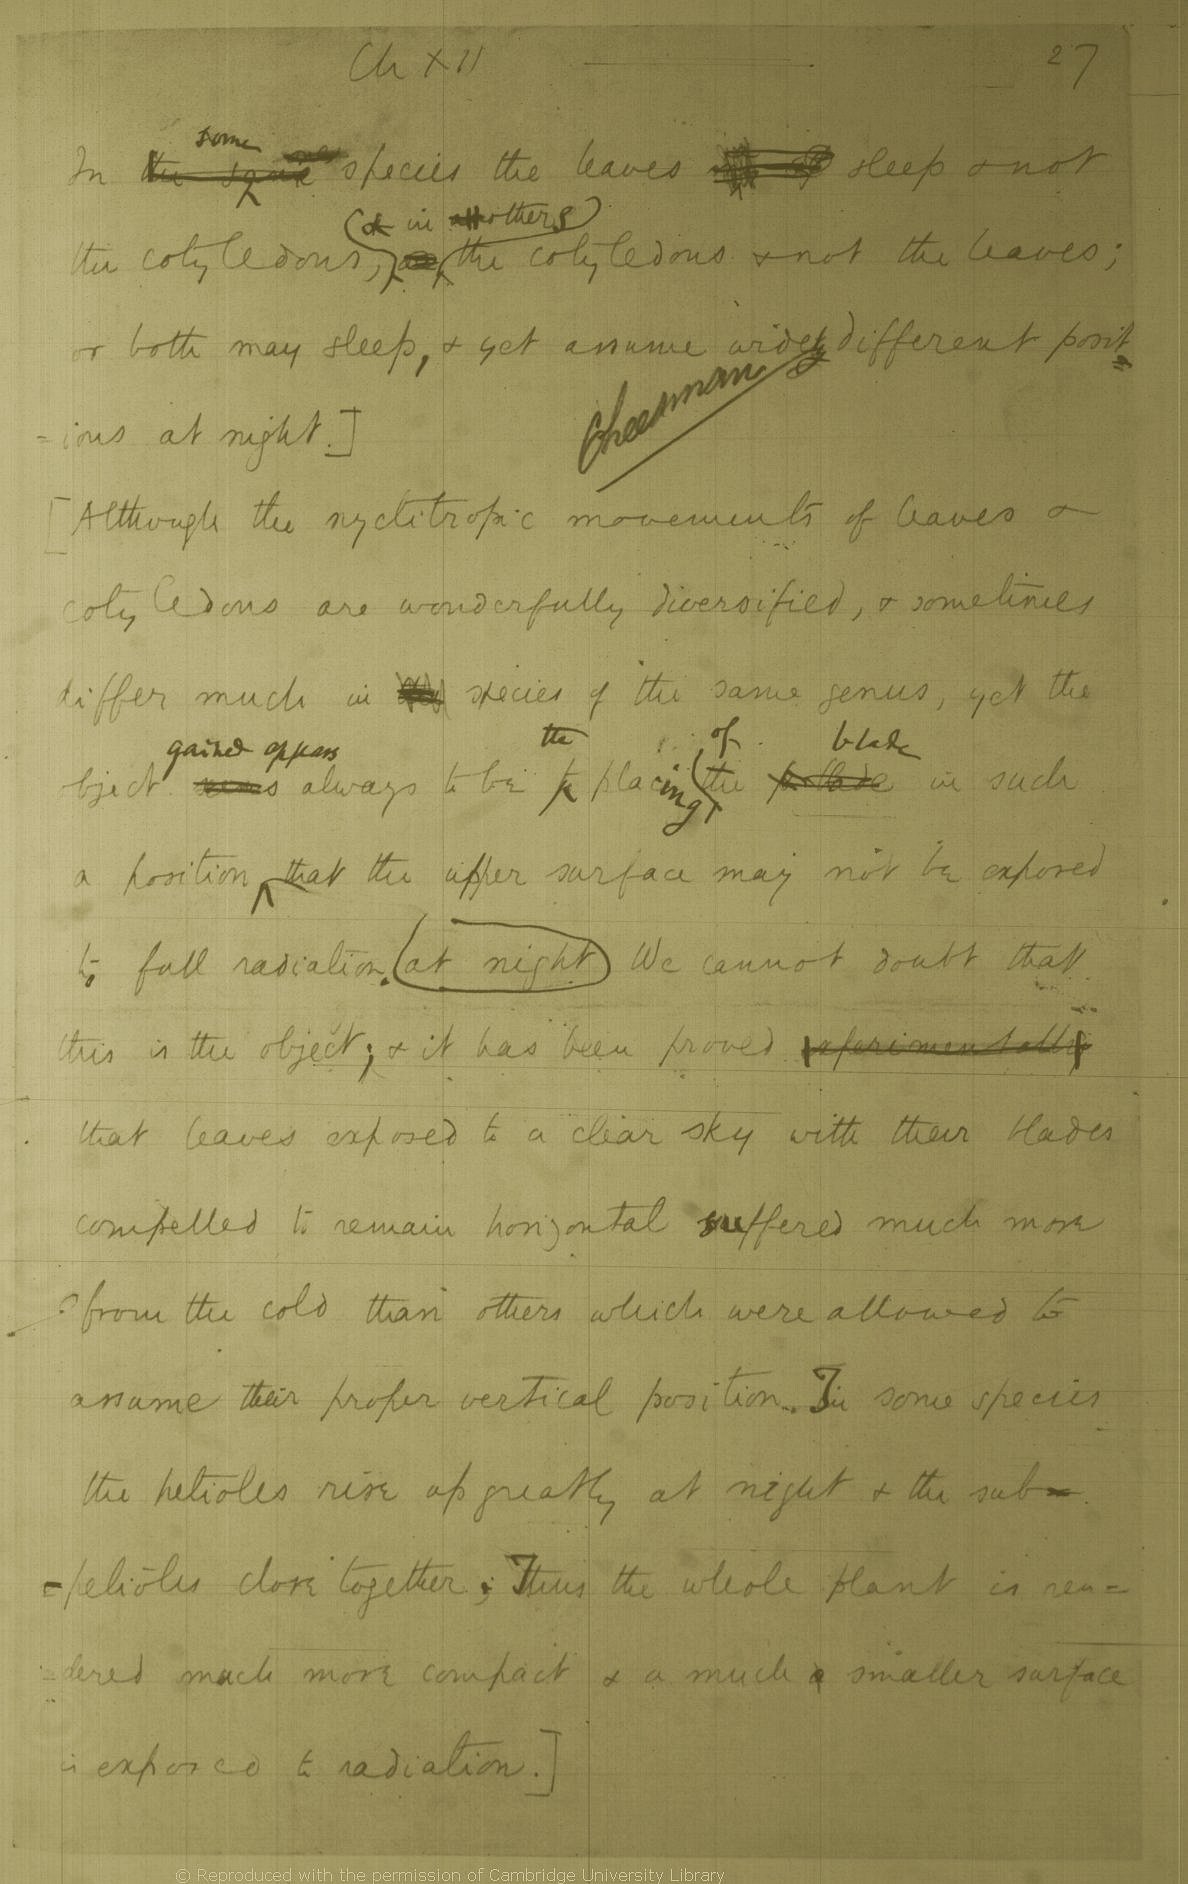 Ch XII 27
some
In the same species the leaves sleep & not
& in others
the cotyledons, the cotyledons & not the leaves;
or both may sleep, & yet assume widely different posit
=ions at night.]
Cheesman
[Although the nyctitropic movements of leaves &
cotyledons are wonderfully diversified, & sometimes
differ much in species of the same genus, yet the
gained appears the of blade
object seems always to be placing the blade in such
a position that the upper surface may not be exposed
to full radiation. at night We cannot doubt that
this is the object; & it has been proved experimentally
that leaves exposed to a clear sky with their blades
compelled to remain horizontal suffered much more
from the cold than others which were allowed to
assume their proper vertical position. In some species
the petioles rise up greatly at night & the sub-
=petioles close together; Thus the whole plant is ren=
=dered much more compact & a much smaller surface
is exposed to radiation.]
© Reproduced with the permission of Cambridge University Library